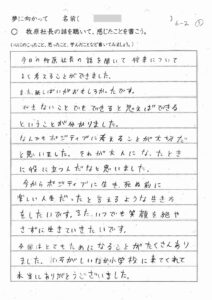 夢に向かって 名前( ) 6-2 ①
○ 牧原社長の話を聴いて、感じたことを書こう。
(心にのこったこと、思ったこと、学んだことなど書いてみましょう。)
今日の牧原社長の話を聞いて将来について
深く考えることができました。
また、新しい
できないことでもできると思えばできる
ということが分かりました。
なんでもポジティブに考えることが大切だ
と思いました。それが大人になったとき
に役に立つんだなと思いました。
今からポジティブに生き、死ぬ前に
楽しい人生だったと言えるような生き方
をしたいです。また、いつでも笑顔を絶や
さずに生きていきたいです。
今日はとてもためになることがたくさんあり
ました。お忙しいなか小学校に来てくれて
本当にありがとうございました。